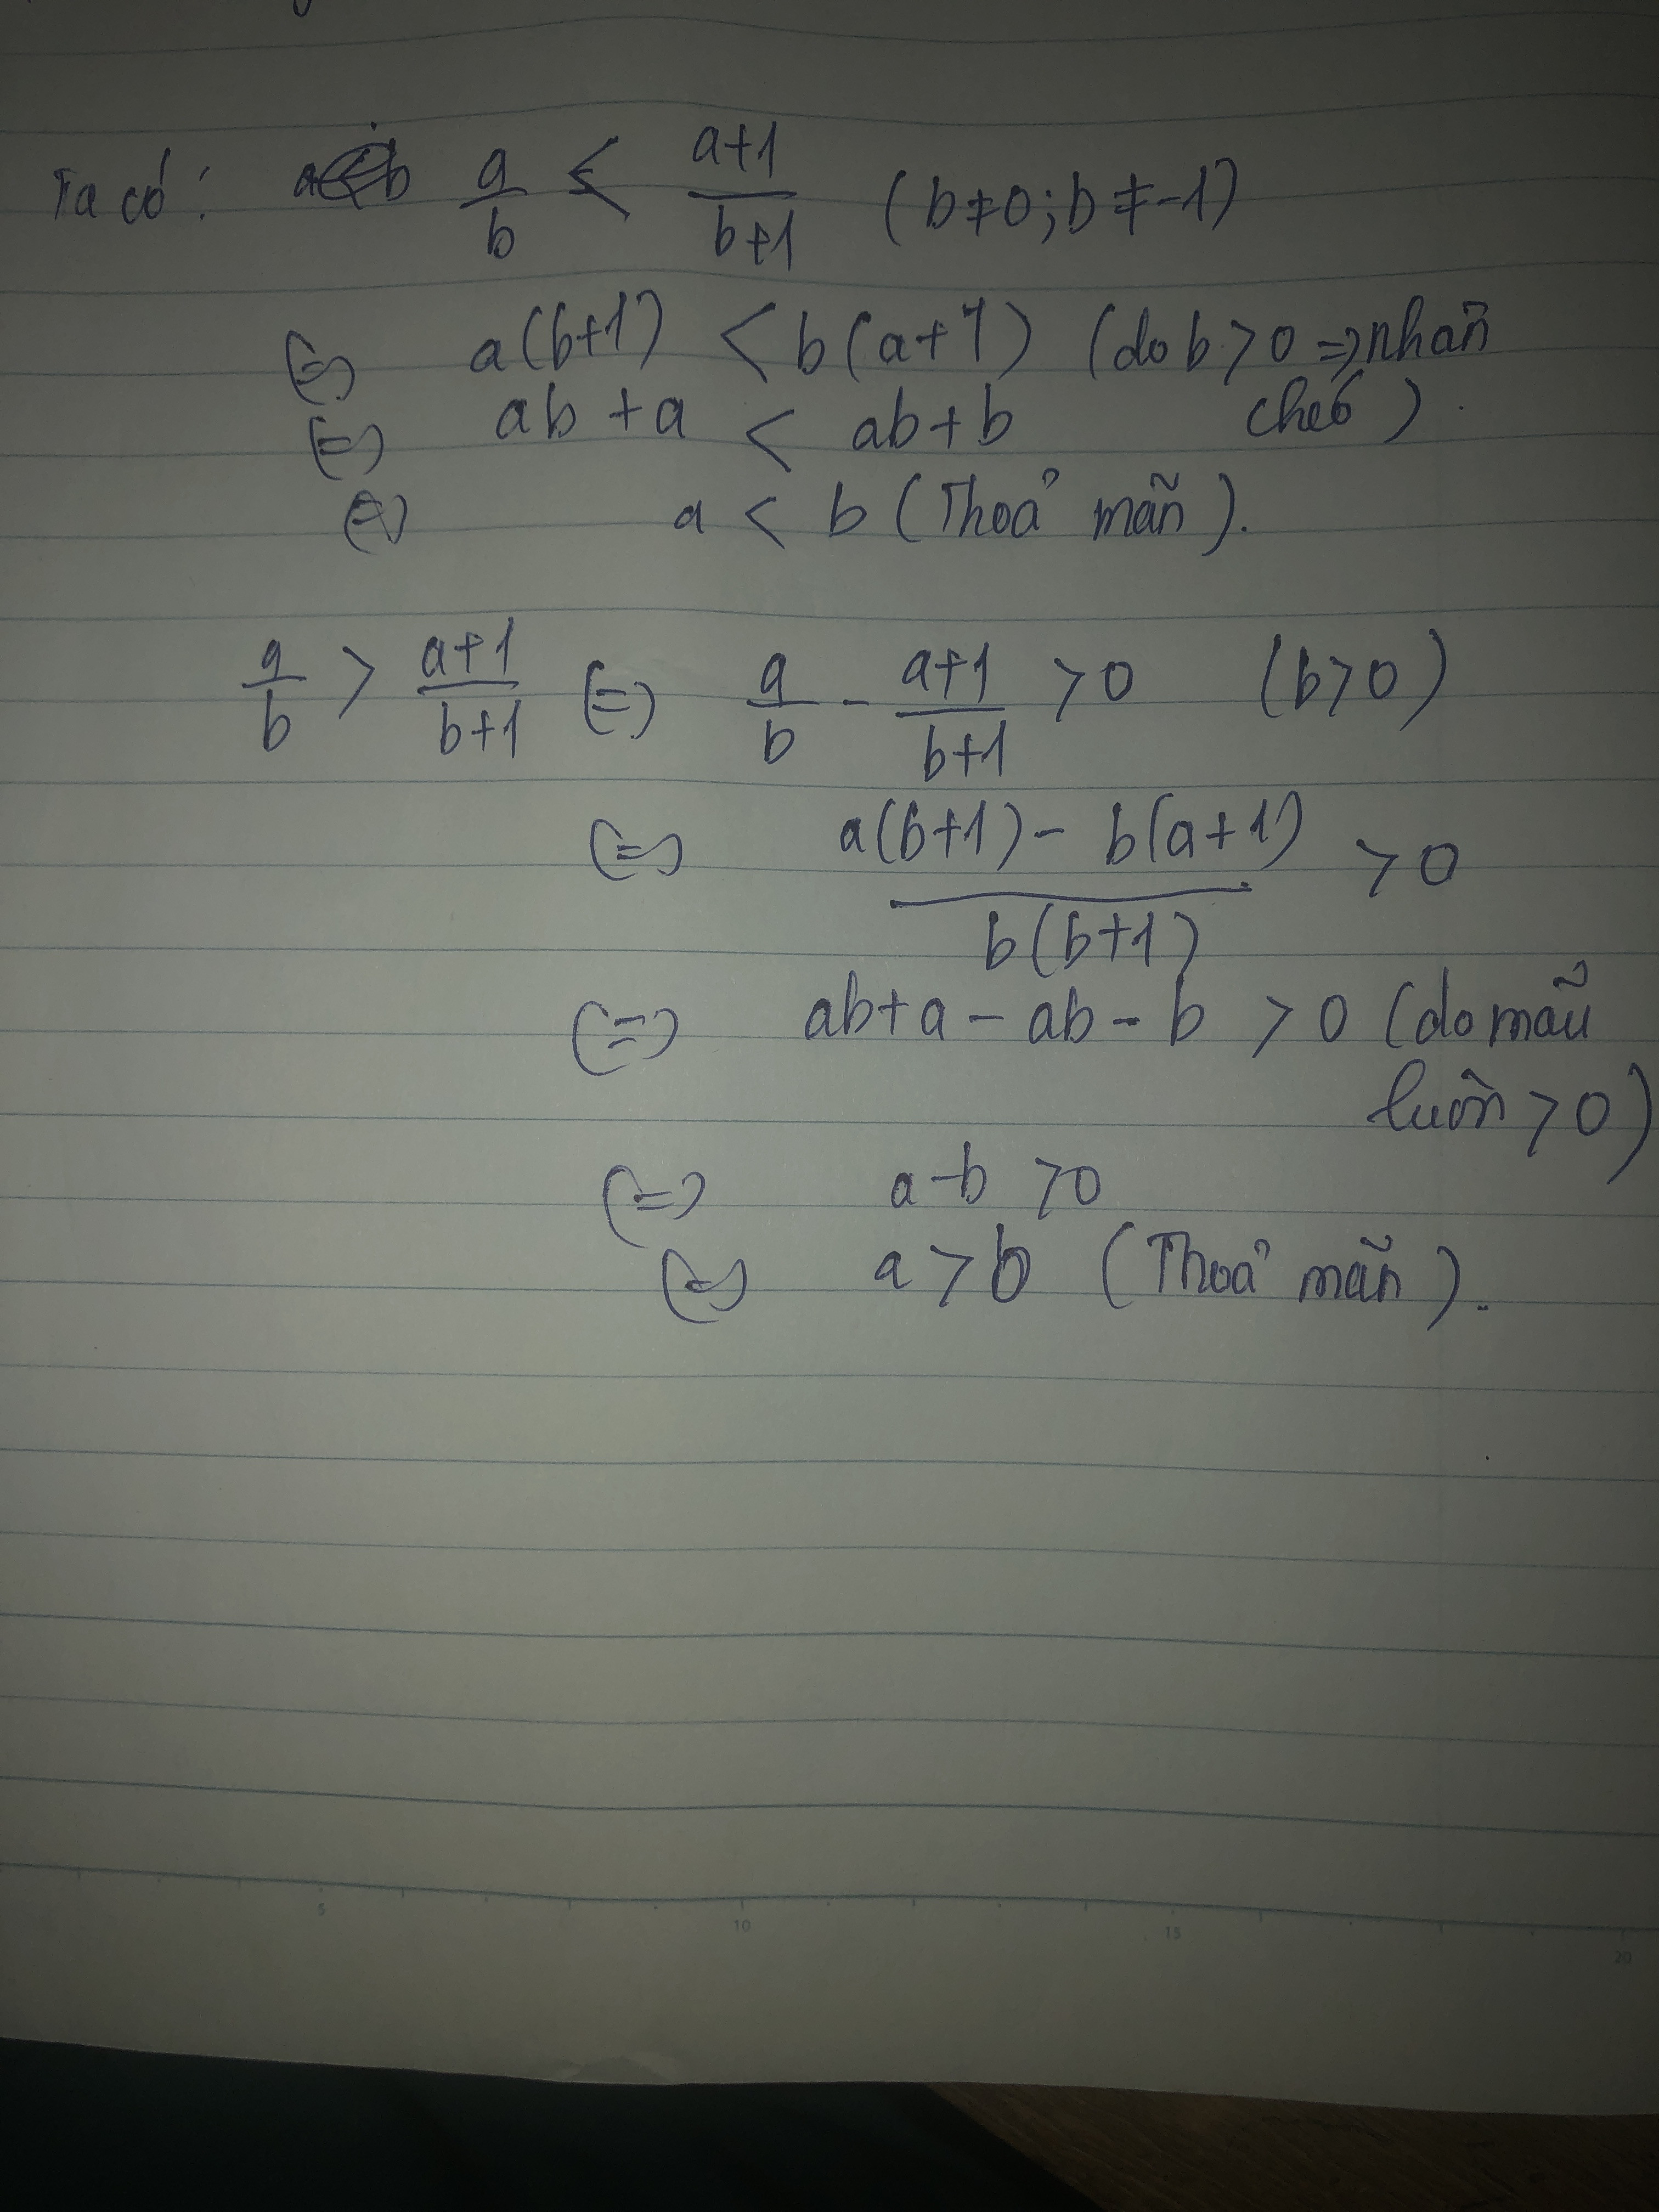 Ta có: a b a/b < a+1/b+1 (b≠0; b≠-1)
(=) a(b+1) < b(a+1) (do b>0 => nhân
chéo).
(=) ab + a < ab + b
(=) a < b (Thoả mãn).
a/b > a+1/b+1 (=) a/b - a+1/b+1 >0 (b>0)
(=) a(b+1) - b(a+1)/b(b+1) >0
(=) ab+a - ab - b > 0 (do mẫu
luôn > 0)
(=) a-b >0
(=) a > b (Thoả mãn).
5 10 15 20